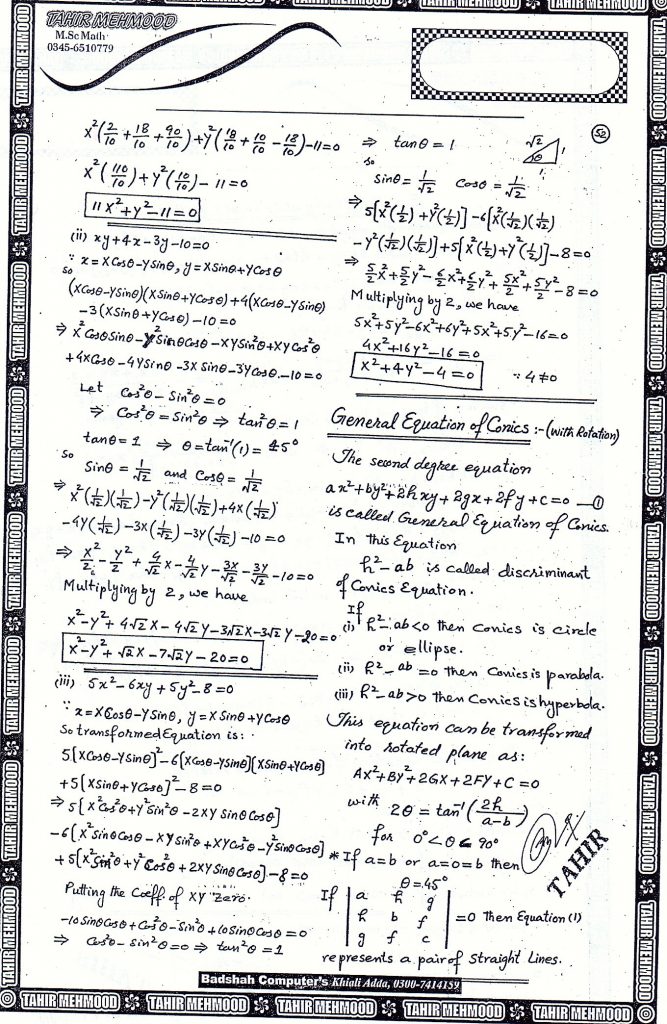 TAHIR MEHMOOD
M.Sc Math
0345-6510779
52
x²(2/10 + 18/10 + 90/10) + y²(18/10 + 10/10 - 18/10) - 11 = 0
x²(110/10) + y²(10/10) - 11 = 0
11x² + y² - 11 = 0
(ii) xy + 4x - 3y - 10 = 0
∵ x = XCosθ - YSinθ, y = XSinθ + YCosθ
so
(XCosθ - YSinθ)(XSinθ + YCosθ) + 4(XCosθ - YSinθ)
- 3(XSinθ + YCosθ) - 10 = 0
⇒ X²CosθSinθ - Y²SinθCosθ - XYSin²θ + XYCos²θ
+ 4XCosθ - 4YSinθ - 3XSinθ - 3YCosθ - 10 = 0
Let Cos²θ - Sin²θ = 0
⇒ Cos²θ = Sin²θ ⇒ tan²θ = 1
tanθ = 1 ⇒ θ = tan⁻¹(1) = 45°
So
Sinθ = 1/√2 and Cosθ = 1/√2
⇒ X²(1/√2)(1/√2) - Y²(1/√2)(1/√2) + 4X(1/√2)
- 4Y(1/√2) - 3X(1/√2) - 3Y(1/√2) - 10 = 0
⇒ X²/2 - Y²/2 + 4/√2 X - 4/√2 Y - 3X/√2 - 3Y/√2 - 10 = 0
Multiplying by 2, we have
X² - Y² + 4√2 X - 4√2 Y - 3√2 X - 3√2 Y - 20 = 0
X² - Y² + √2 X - 7√2 Y - 20 = 0
(iii) 5x² - 6xy + 5y² - 8 = 0
∵ x = XCosθ - YSinθ, y = XSinθ + YCosθ
So transformed Equation is:
5[XCosθ - YSinθ]² - 6[XCosθ - YSinθ][XSinθ + YCosθ]
+ 5[XSinθ + YCosθ]² - 8 = 0
⇒ 5[X²Cos²θ + Y²Sin²θ - 2XYSinθCosθ]
- 6[X²SinθCosθ - XYSin²θ + XYCos²θ - Y²SinθCosθ]
+ 5[X²Sin²θ + Y²Cos²θ + 2XYSinθCosθ] - 8 = 0
Putting the Coeff. of XY Zero.
-10SinθCosθ + Cos²θ - Sin²θ + 10SinθCosθ = 0
⇒ Cos²θ - Sin²θ = 0 ⇒ tan²θ = 1
⇒ tanθ = 1
√2 1
θ
1
so
Sinθ = 1/√2 Cosθ = 1/√2
⇒ 5[X²(1/2) + Y²(1/2)] - 6[X²(1/√2)(1/√2)
- Y²(1/√2)(1/√2)] + 5[X²(1/2) + Y²(1/2)] - 8 = 0
⇒ 5/2 X² + 5/2 Y² - 6/2 X² + 6/2 Y² + 5X²/2 + 5Y²/2 - 8 = 0
Multiplying by 2, we have
5X² + 5Y² - 6X² + 6Y² + 5X² + 5Y² - 16 = 0
4X² + 16Y² - 16 = 0
X² + 4Y² - 4 = 0 ∵ 4 ≠ 0
General Equation of Conics :- (with Rotation)
The second degree equation
ax² + by² + 2hxy + 2gx + 2fy + c = 0 — ①
is called General Equation of Conics.
In this Equation
h² - ab is called discriminant
of Conics Equation.
If
(i) h² - ab < 0 then Conics is circle
or ellipse.
(ii) h² - ab = 0 then Conics is parabola.
(iii) h² - ab > 0 then Conics is hyperbola.
This equation can be transformed
into rotated plane as:
AX² + BY² + 2GX + 2FY + C = 0
with 2θ = tan⁻¹(2h/a-b)
for 0° < θ < 90°
* If a = b or a = 0 = b then
θ = 45°
TAHIR
If | a h g |
| h b f | = 0 then Equation (1)
| g f c |
represents a pair of Straight Lines.
Badshah Computer's Khiali Adda, 0300-7414159
TAHIR MEHMOOD TAHIR MEHMOOD TAHIR MEHMOOD TAHIR MEHMOOD TAHIR MEHMOOD